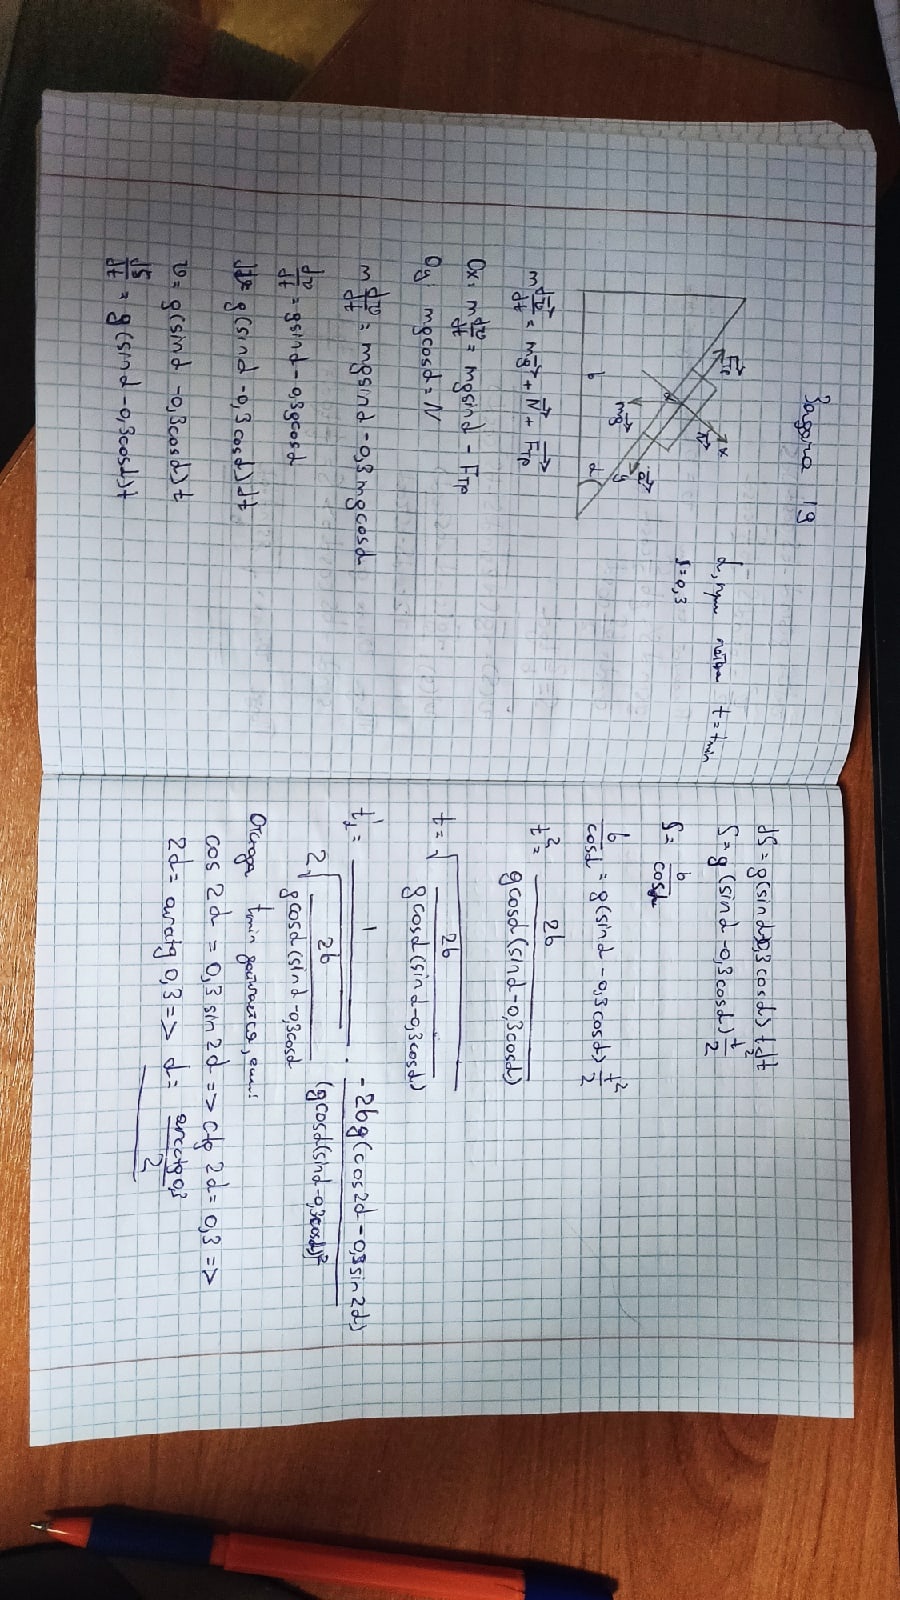 Задача 19
α, при t = t_min
f = 0,3
F_тр
N
x
mg
a
y
b
α
m dv/dt = mg + N + F_тр
Ox: m dv/dt = mg sinα - F_тр
Oy: mg cosα = N
m dv/dt = mg sinα - 0,3 mg cosα
dv/dt = g sinα - 0,3g cosα
dv = g(sinα - 0,3 cosα) dt
v = g(sinα - 0,3cosα) t
dS/dt = g(sinα - 0,3cosα) t
dS = g(sinα - 0,3 cosα) t dt
S = g(sinα - 0,3cosα) t²/2
S = b/cosα
b/cosα = g(sinα - 0,3cosα) t²/2
t² = 2b/(g cosα (sinα - 0,3cosα))
t = √(2b/(g cosα (sinα - 0,3cosα)))
t' = 1/(2√(2b/(g cosα (sinα - 0,3cosα)))) · -2bg(cos2α - 0,3 sin2α)/(g cosα (sinα - 0,3cosα))²
Отсюда t_min достигается, если:
cos 2α = 0,3 sin 2α => ctg 2α = 0,3 =>
2α = arcctg 0,3 => α = arcctg 0,3/2